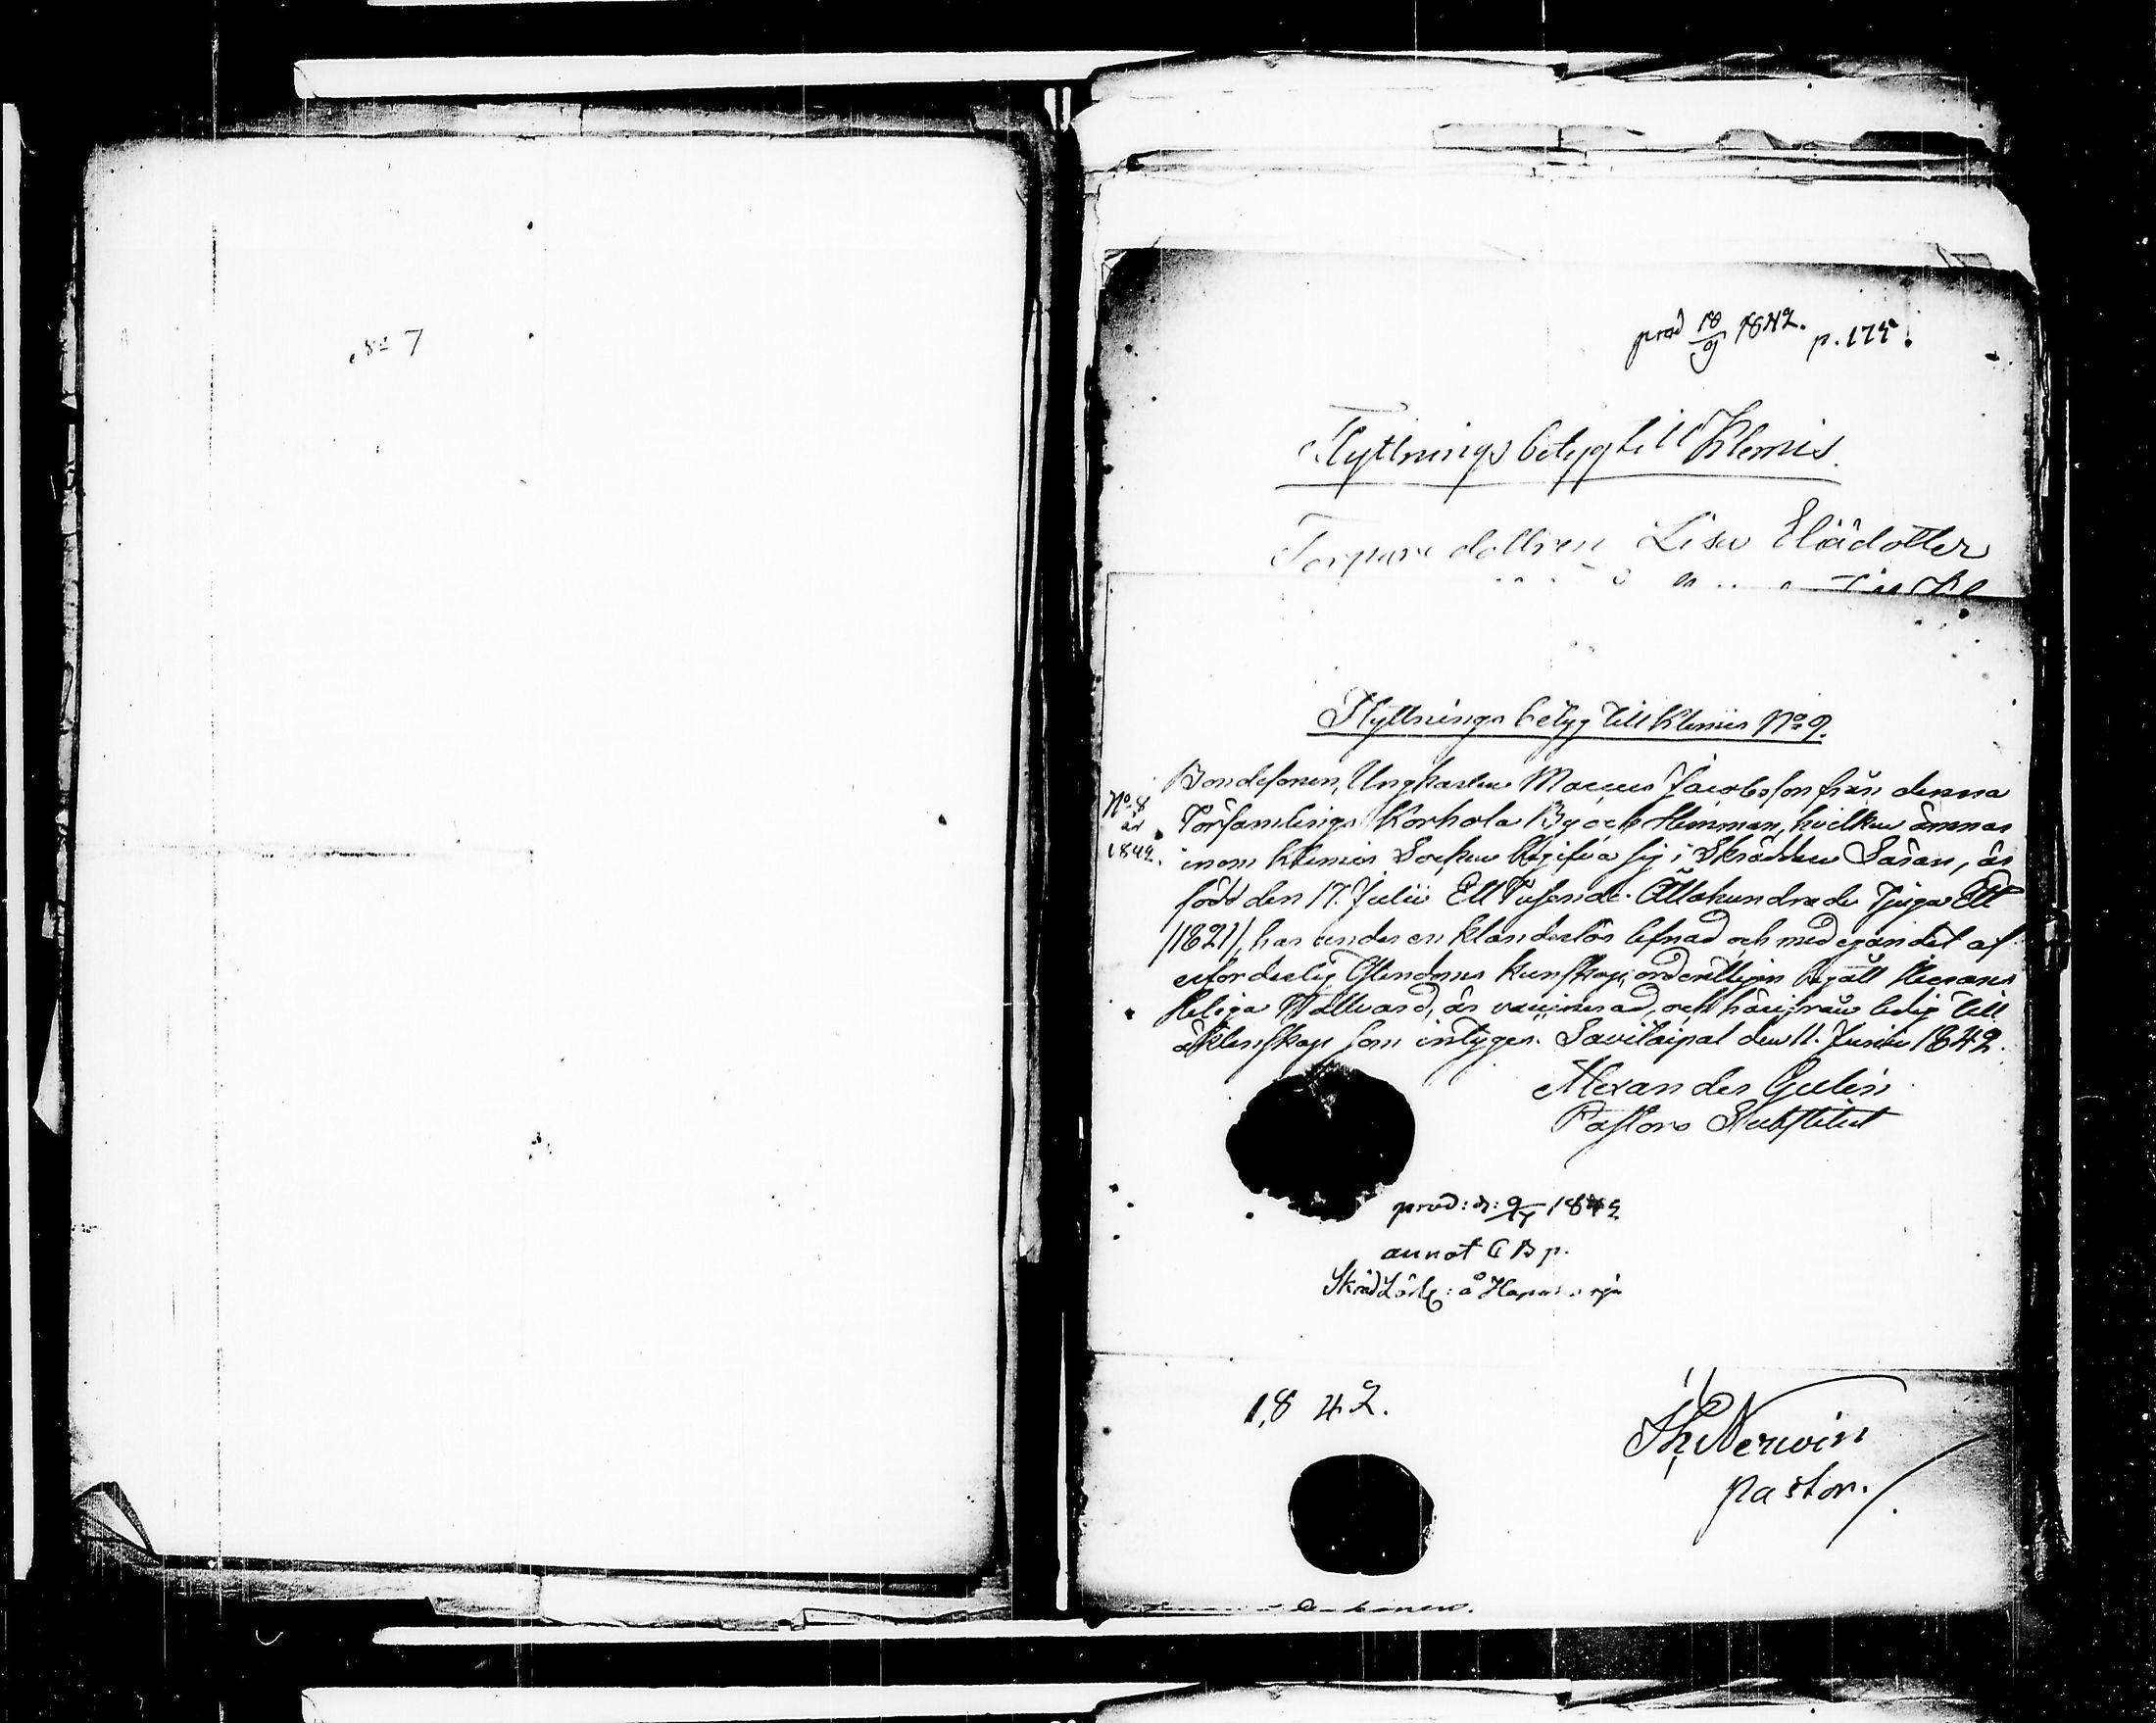 No 7
prod 18/9 1842. p. 175.
Flyttnings betyg till Klemis.
Torpare dottren Lisa Eliædotter
Flyttnings betyg till Klemis No 9.
No 8
år
1842.
Bondesonen, Ungkarlen Marcus Jacobsson från denna
Församlings Korhola By och Hemman, hvilken ämnar
inom Klemis Socken begifva sig i Skräddare Läran, är
född den 17. Julii Ett Tusende Åttahundrade Tjugu Ett
/1821/, har under en klanderlös lefnad och med egandet af
erforderlig Christendoms kunskap, ordentligen begått Herrans
Heliga Nattvard, är vaccinerad, och härifrån ledig till
äktenskap som intygar. Savitaipal den 11. Junii 1842.
Alexander Gulin
Pastors Substitut
prod: d: 9/ 1842
annot C B p.
Skrädd Lärl: å
1842.
Th Nerwin
pastor.